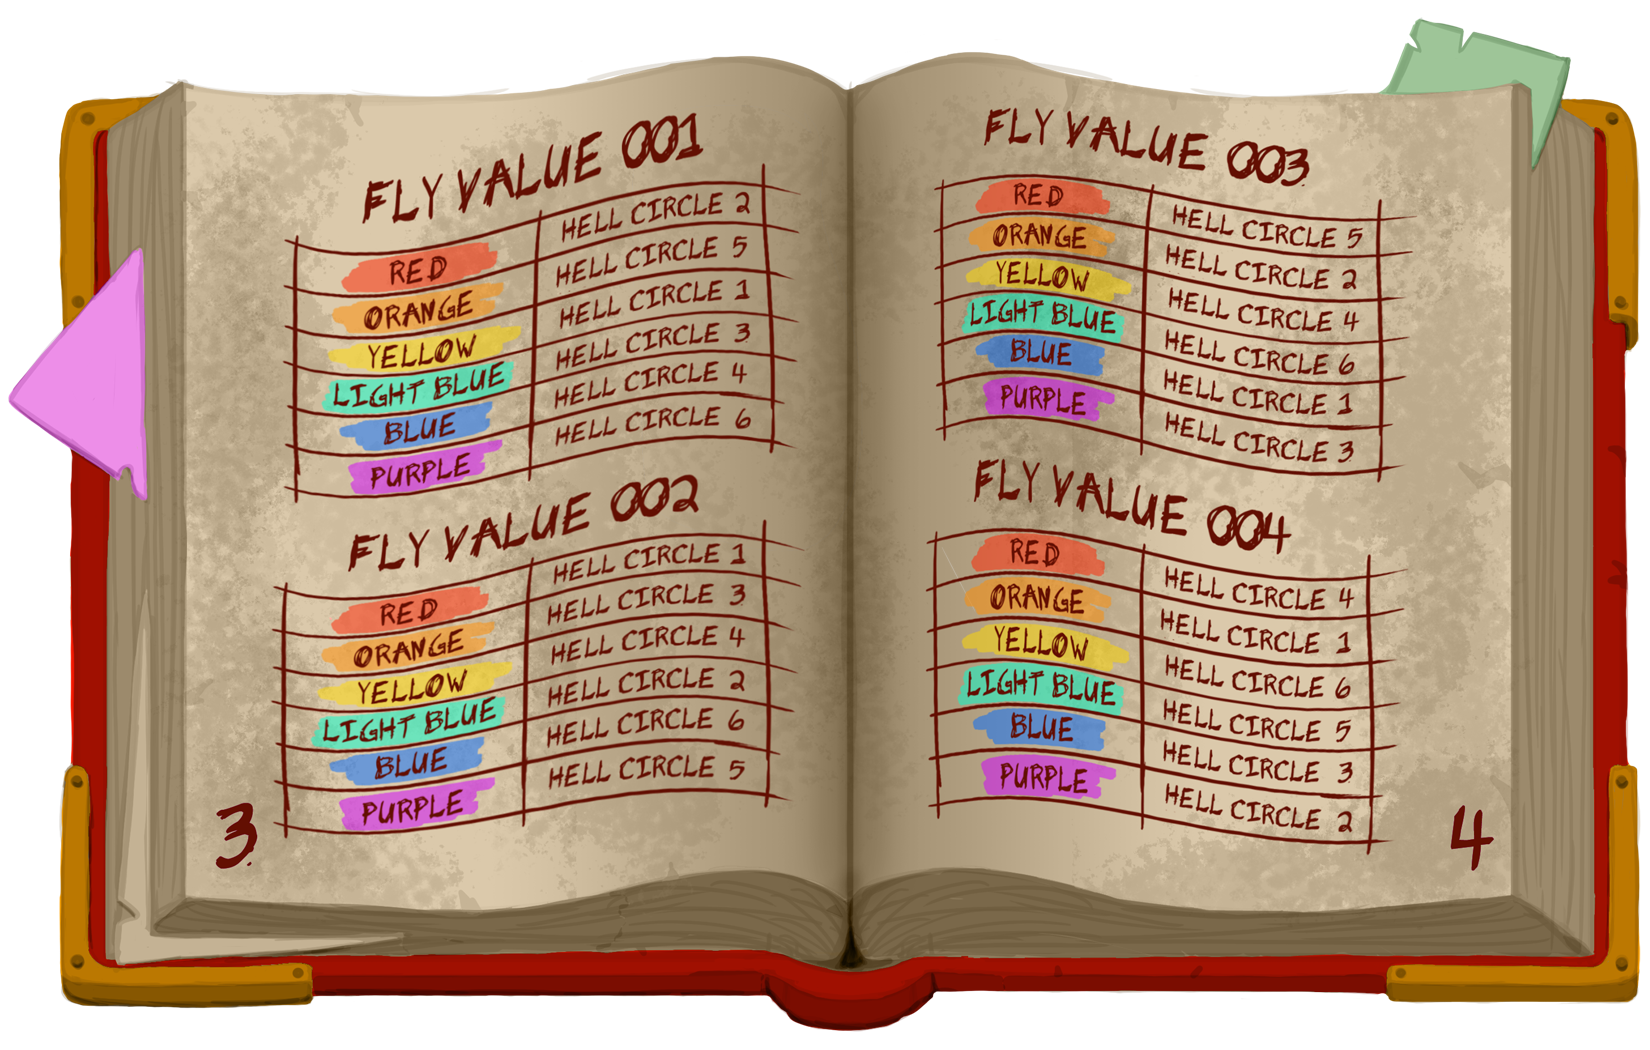 FLY VALUE 001
RED HELL CIRCLE 2
ORANGE HELL CIRCLE 5
YELLOW HELL CIRCLE 1
LIGHT BLUE HELL CIRCLE 3
BLUE HELL CIRCLE 4
PURPLE HELL CIRCLE 6
FLY VALUE 002
RED HELL CIRCLE 1
ORANGE HELL CIRCLE 3
YELLOW HELL CIRCLE 4
LIGHT BLUE HELL CIRCLE 2
BLUE HELL CIRCLE 6
PURPLE HELL CIRCLE 5
3
FLY VALUE 003
RED HELL CIRCLE 5
ORANGE HELL CIRCLE 2
YELLOW HELL CIRCLE 4
LIGHT BLUE HELL CIRCLE 6
BLUE HELL CIRCLE 1
PURPLE HELL CIRCLE 3
FLY VALUE 004
RED HELL CIRCLE 4
ORANGE HELL CIRCLE 1
YELLOW HELL CIRCLE 6
LIGHT BLUE HELL CIRCLE 5
BLUE HELL CIRCLE 3
PURPLE HELL CIRCLE 2
4